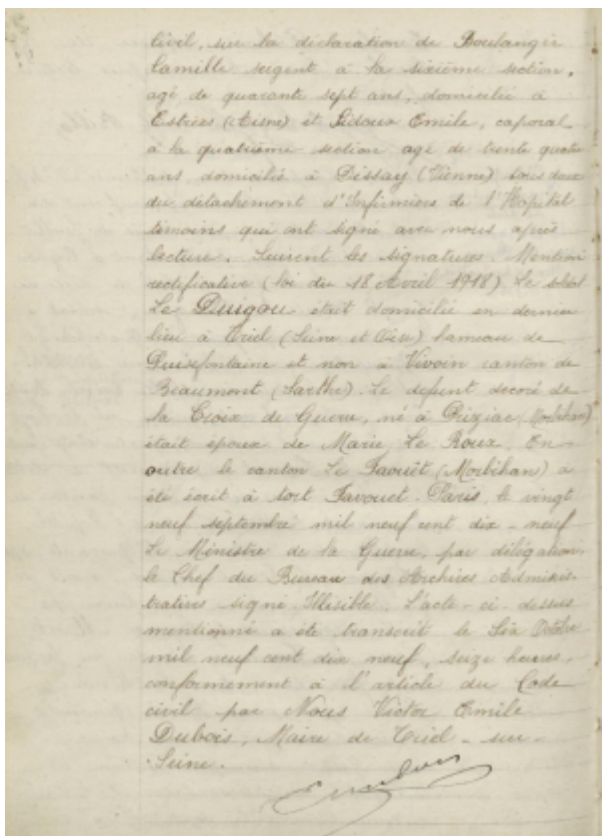 civil, sur la déclaration de Boulanger
Camille sergent à la sixième section,
agé de quarante sept ans, domicilié à
Estrées (Aisne) et Ledoux Emile, caporal
à la quatrième section agé de trente quatre
ans domicilié à Dissay (Vienne) tous deux
du détachement d'Infirmiers de l'Hopital
témoins qui ont signé avec nous après
lecture. Suivent les signatures. Mention
rectificative (loi du 18 Avril 1918) Le soldat
Le Duigou était domicilié en dernier
lieu à Triel (Seine et Oise) hameau de
Puisefontaine et non à Vivoin canton de
Beaumont (Sarthe). Le défunt décoré de
la Croix de Guerre, né à Priziac (Morbihan)
était époux de Marie Le Roux. En
outre le canton Le Faouët (Morbihan) a
été écrit à tort Favouet. Paris, le vingt
neuf septembre mil neuf cent dix-neuf
Le Ministre de la Guerre, par délégation,
le Chef du Bureau des Archives Adminis-
tratives signé Illisible. L'acte-ci-dessus
mentionné a été transcrit le Six Octobre
mil neuf cent dix neuf, seize heures,
conformément à l'article du Code
civil par Nous Victor Emile
Dubois, Maire de Triel-sur-
Seine.